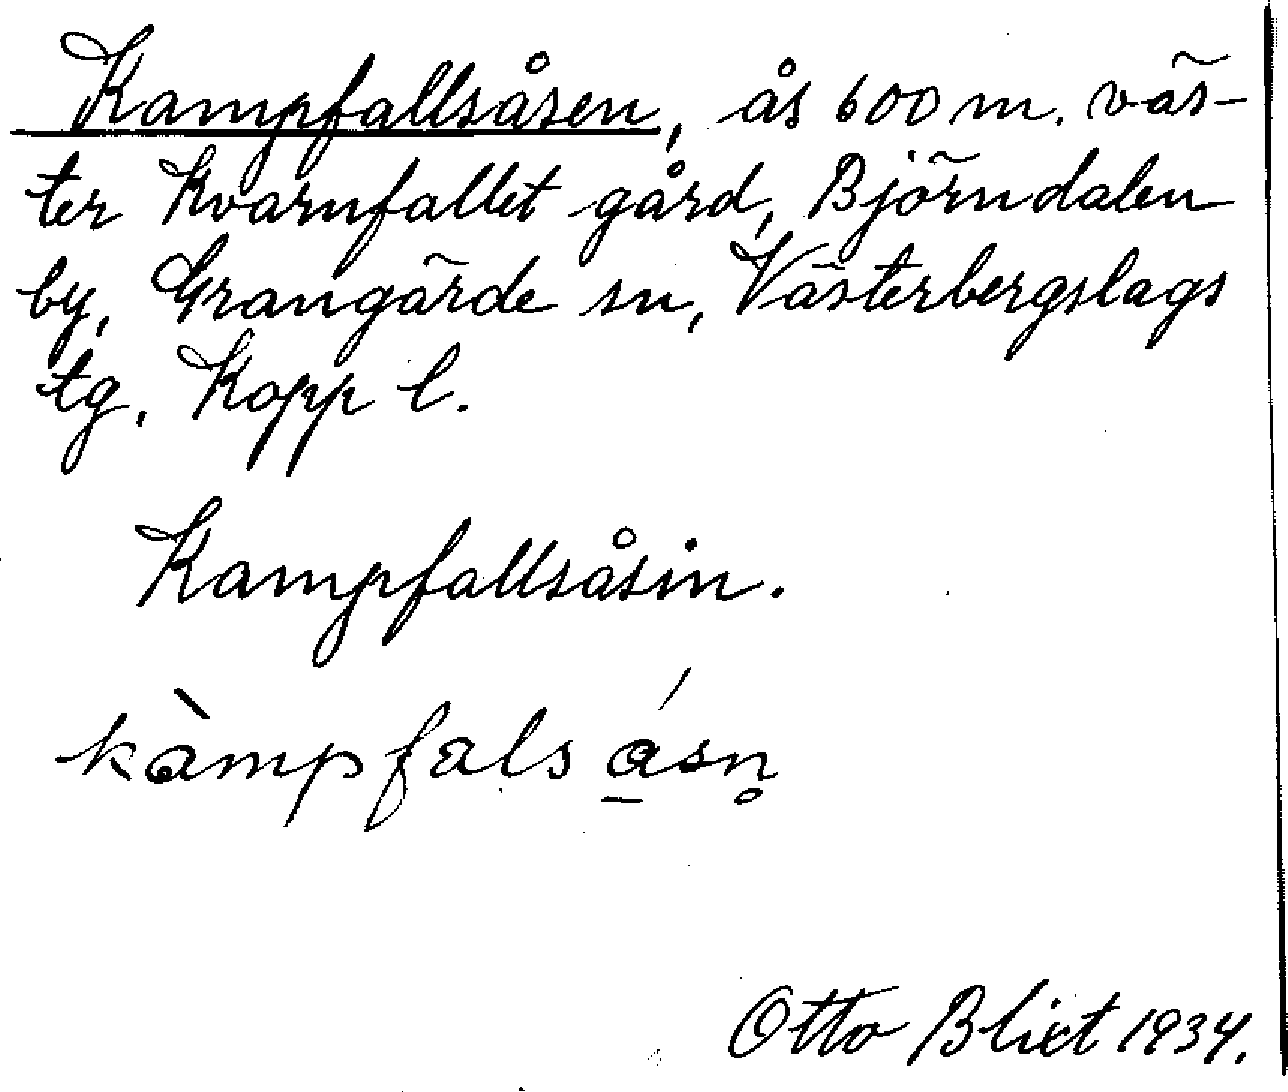 Kampfallsåsen, ås 600 m. väs-
ter Kvarnfallet gård, Björndalen
by, Grangärde sn, Västerbergslags
tg, Kopp l.
Kampfallsåsin.
kàmpfals á̱sn̥
Otto Blixt 1934.